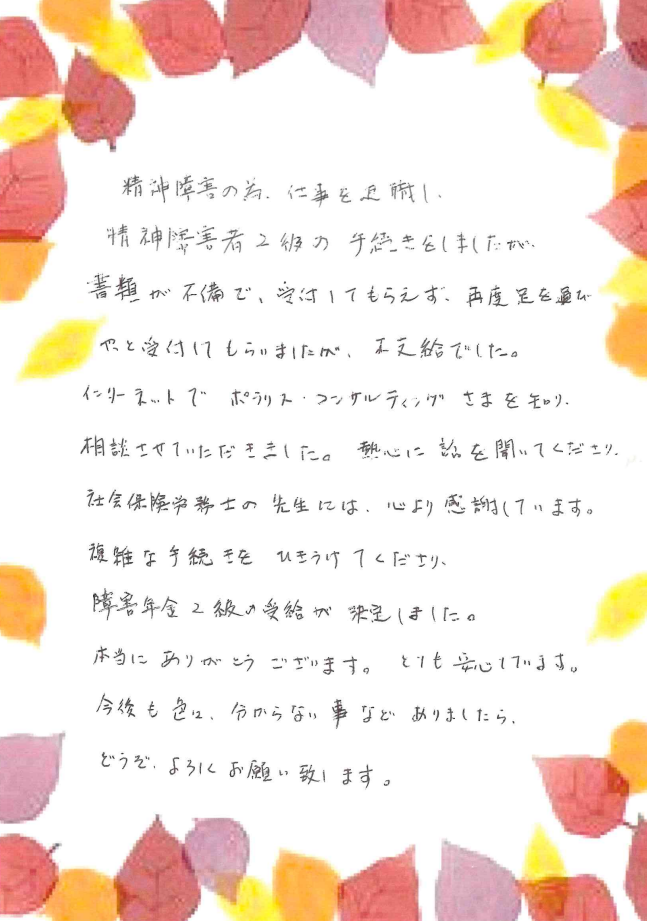 精神障害の為、仕事を退職し、
精神障害者2級の 手続きをしましたが、
書類が不備で、受付してもらえず、再度足を運び
やっと受付けてもらいましたが、不支給でした。
インターネットで ポラリス・コンサルティングさまを知り、
相談させていただきました。 熱心に話を聞いてくださり、
社会保険労務士の先生には、心より感謝しています。
複雑な手続きを ひきうけてくださり、
障害年金2級の受給が決定しました。
本当に ありがとうございます。 とても安心しています。
今後も色々、分からない事など ありましたら、
どうぞ、よろしくお願い致します。